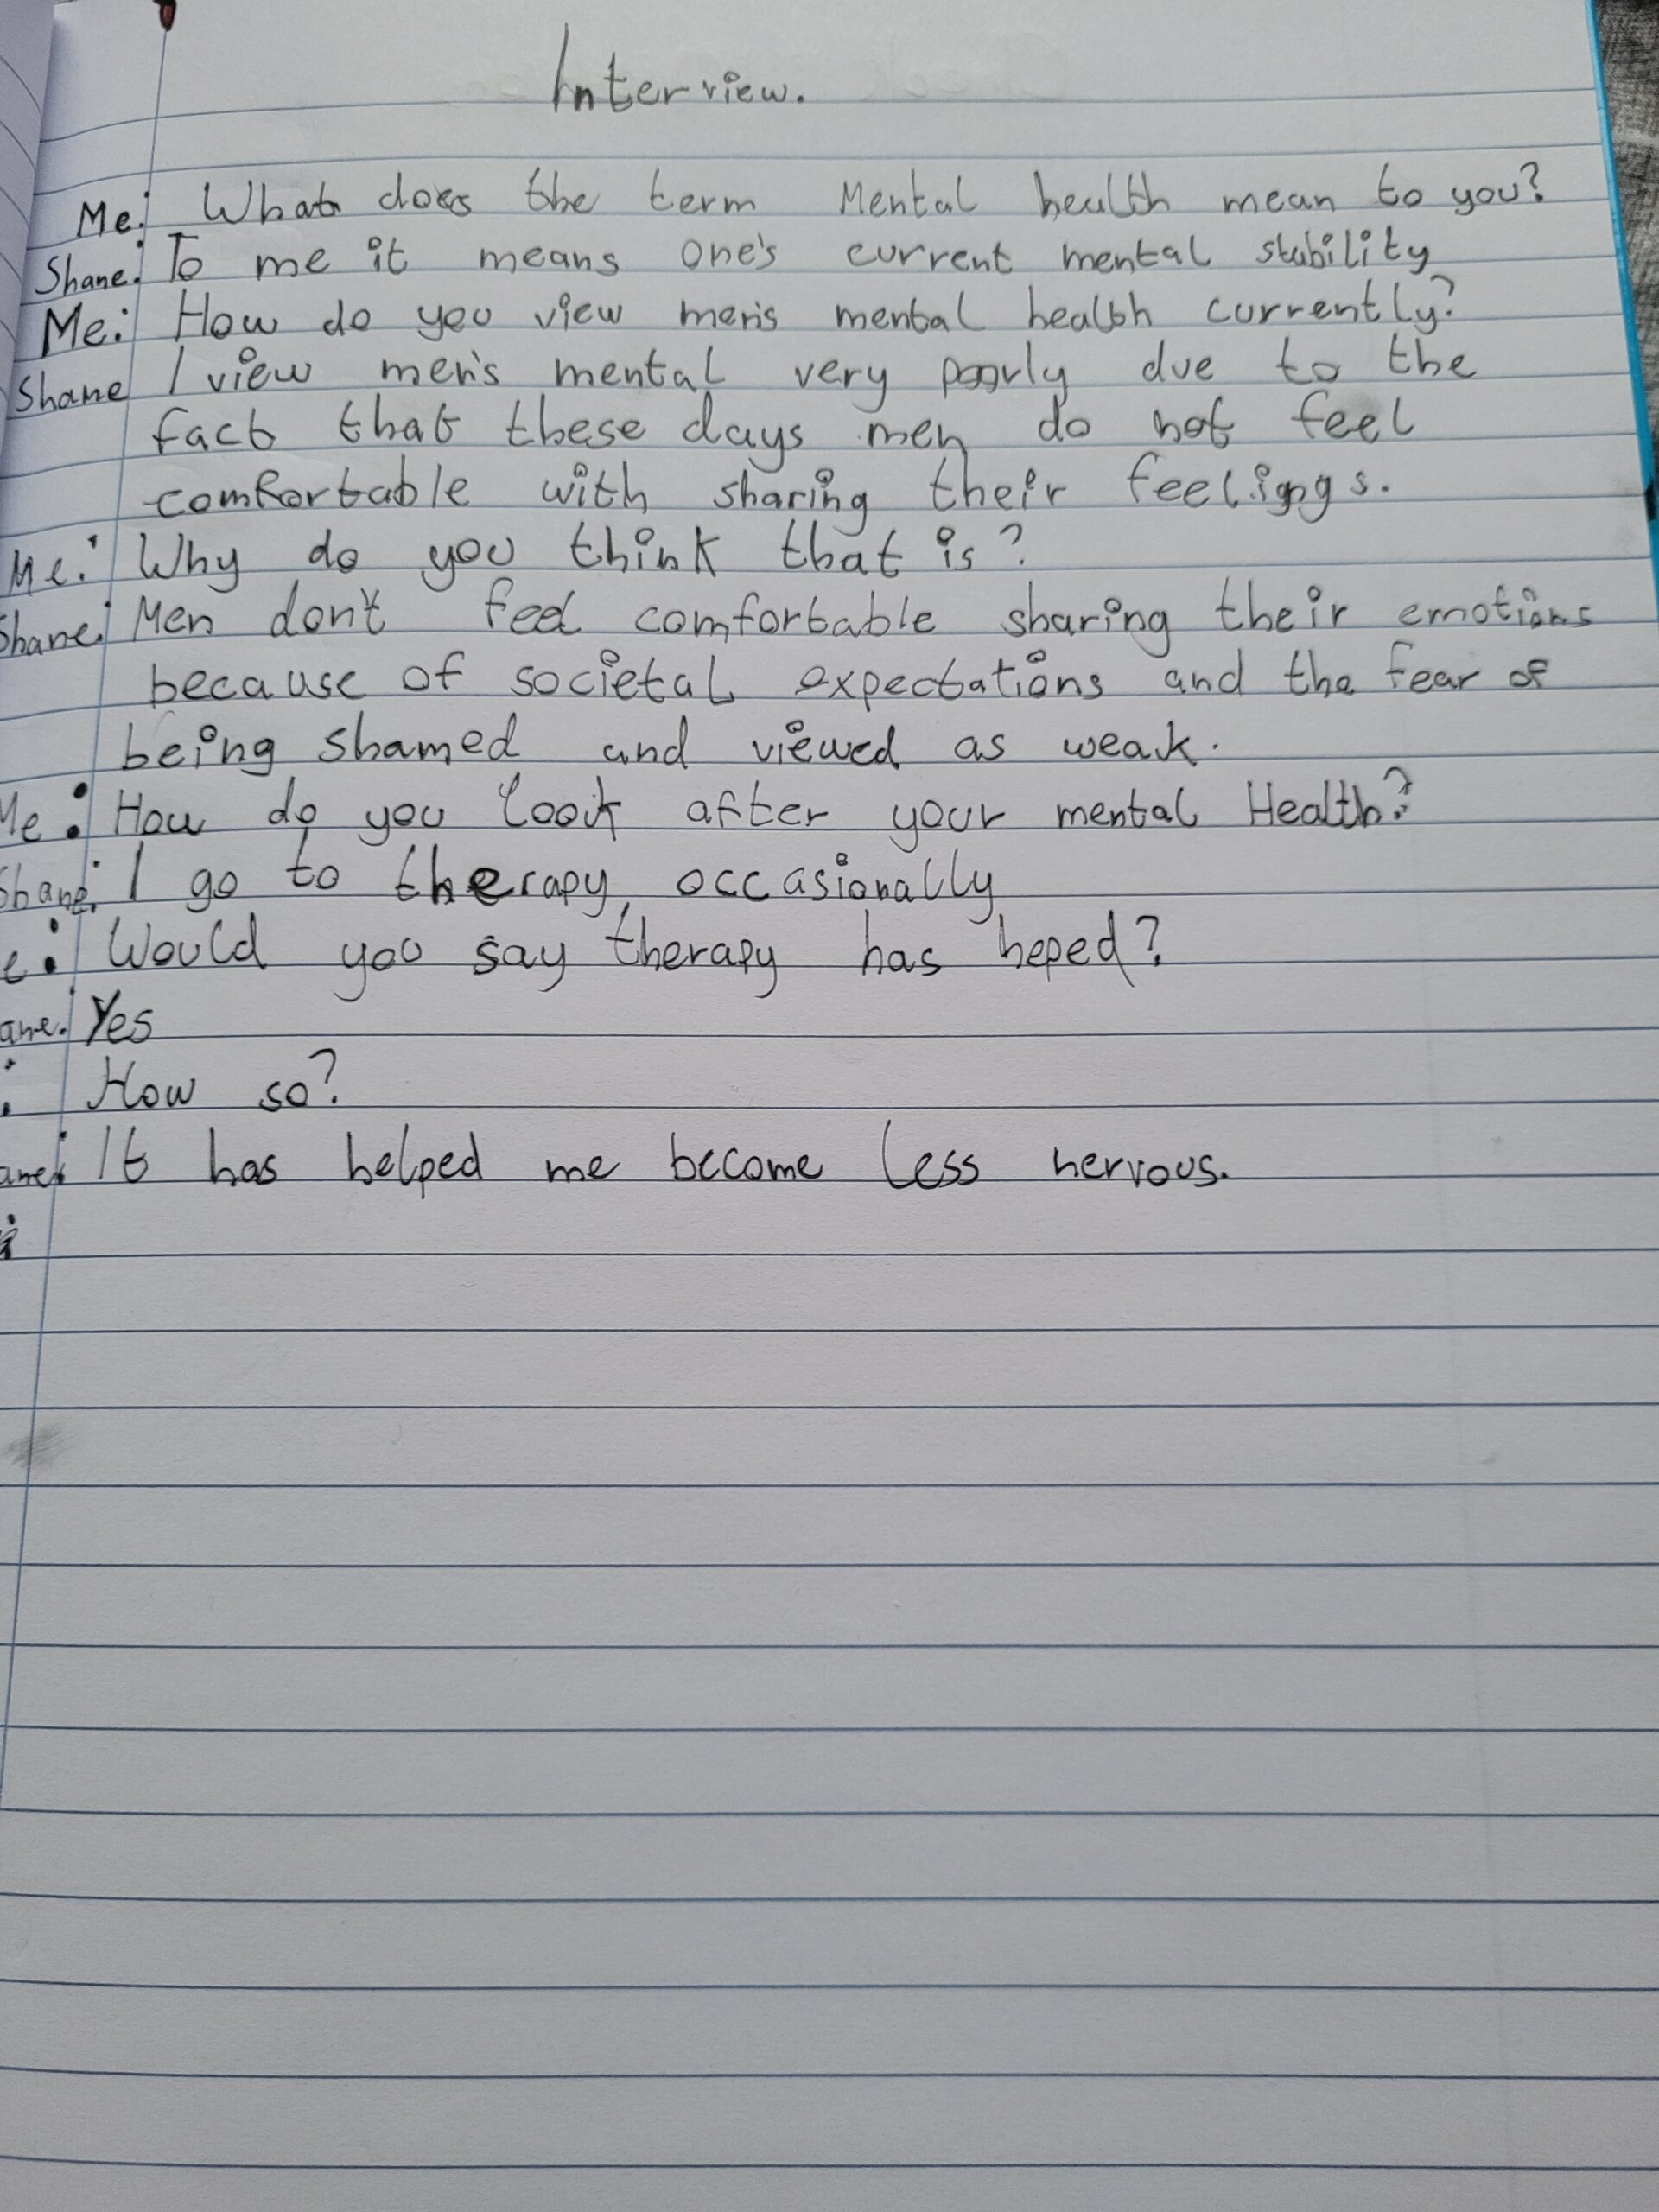 Interview.
Me: What does the term Mental health mean to you?
Shane: To me it means one's current mental stability
Me: How do you view men's mental health currently?
Shane I view men's mental very poorly due to the
fact that these days men do not feel
comfortable with sharing their feelings.
Me: Why do you think that is?
Shane: Men don't feel comfortable sharing their emotions
because of societal expectations and the fear of
being shamed and viewed as weak.
Me: How do you look after your mental Health?
Shane: I go to therapy, occasionally
e: Would you say therapy has heped?
ane: Yes
: How so?
ane: It has helped me become less nervous.
: